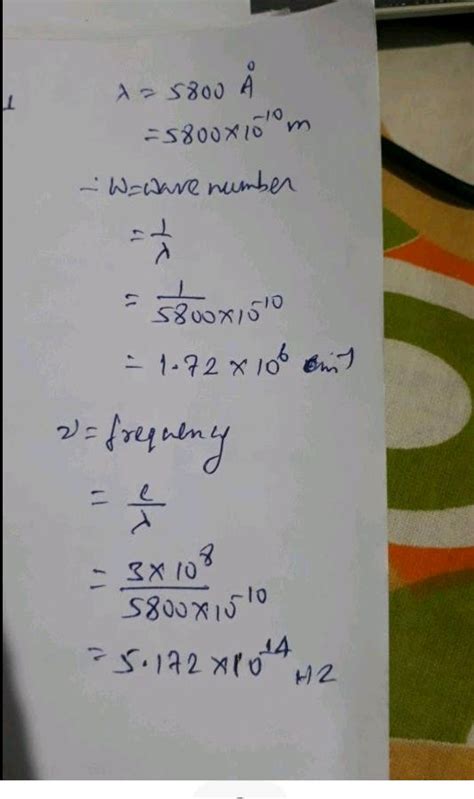 1
λ = 5800 Å
= 5800×10⁻¹⁰ m
∴ W = wave number
= 1/λ
= 1/5800×10⁻¹⁰
= 1.72 × 10⁶ m⁻¹
ν = frequency
= c/λ
= 3×10⁸/5800×10⁻¹⁰
= 5.172 ×10⁻¹⁴ HZ